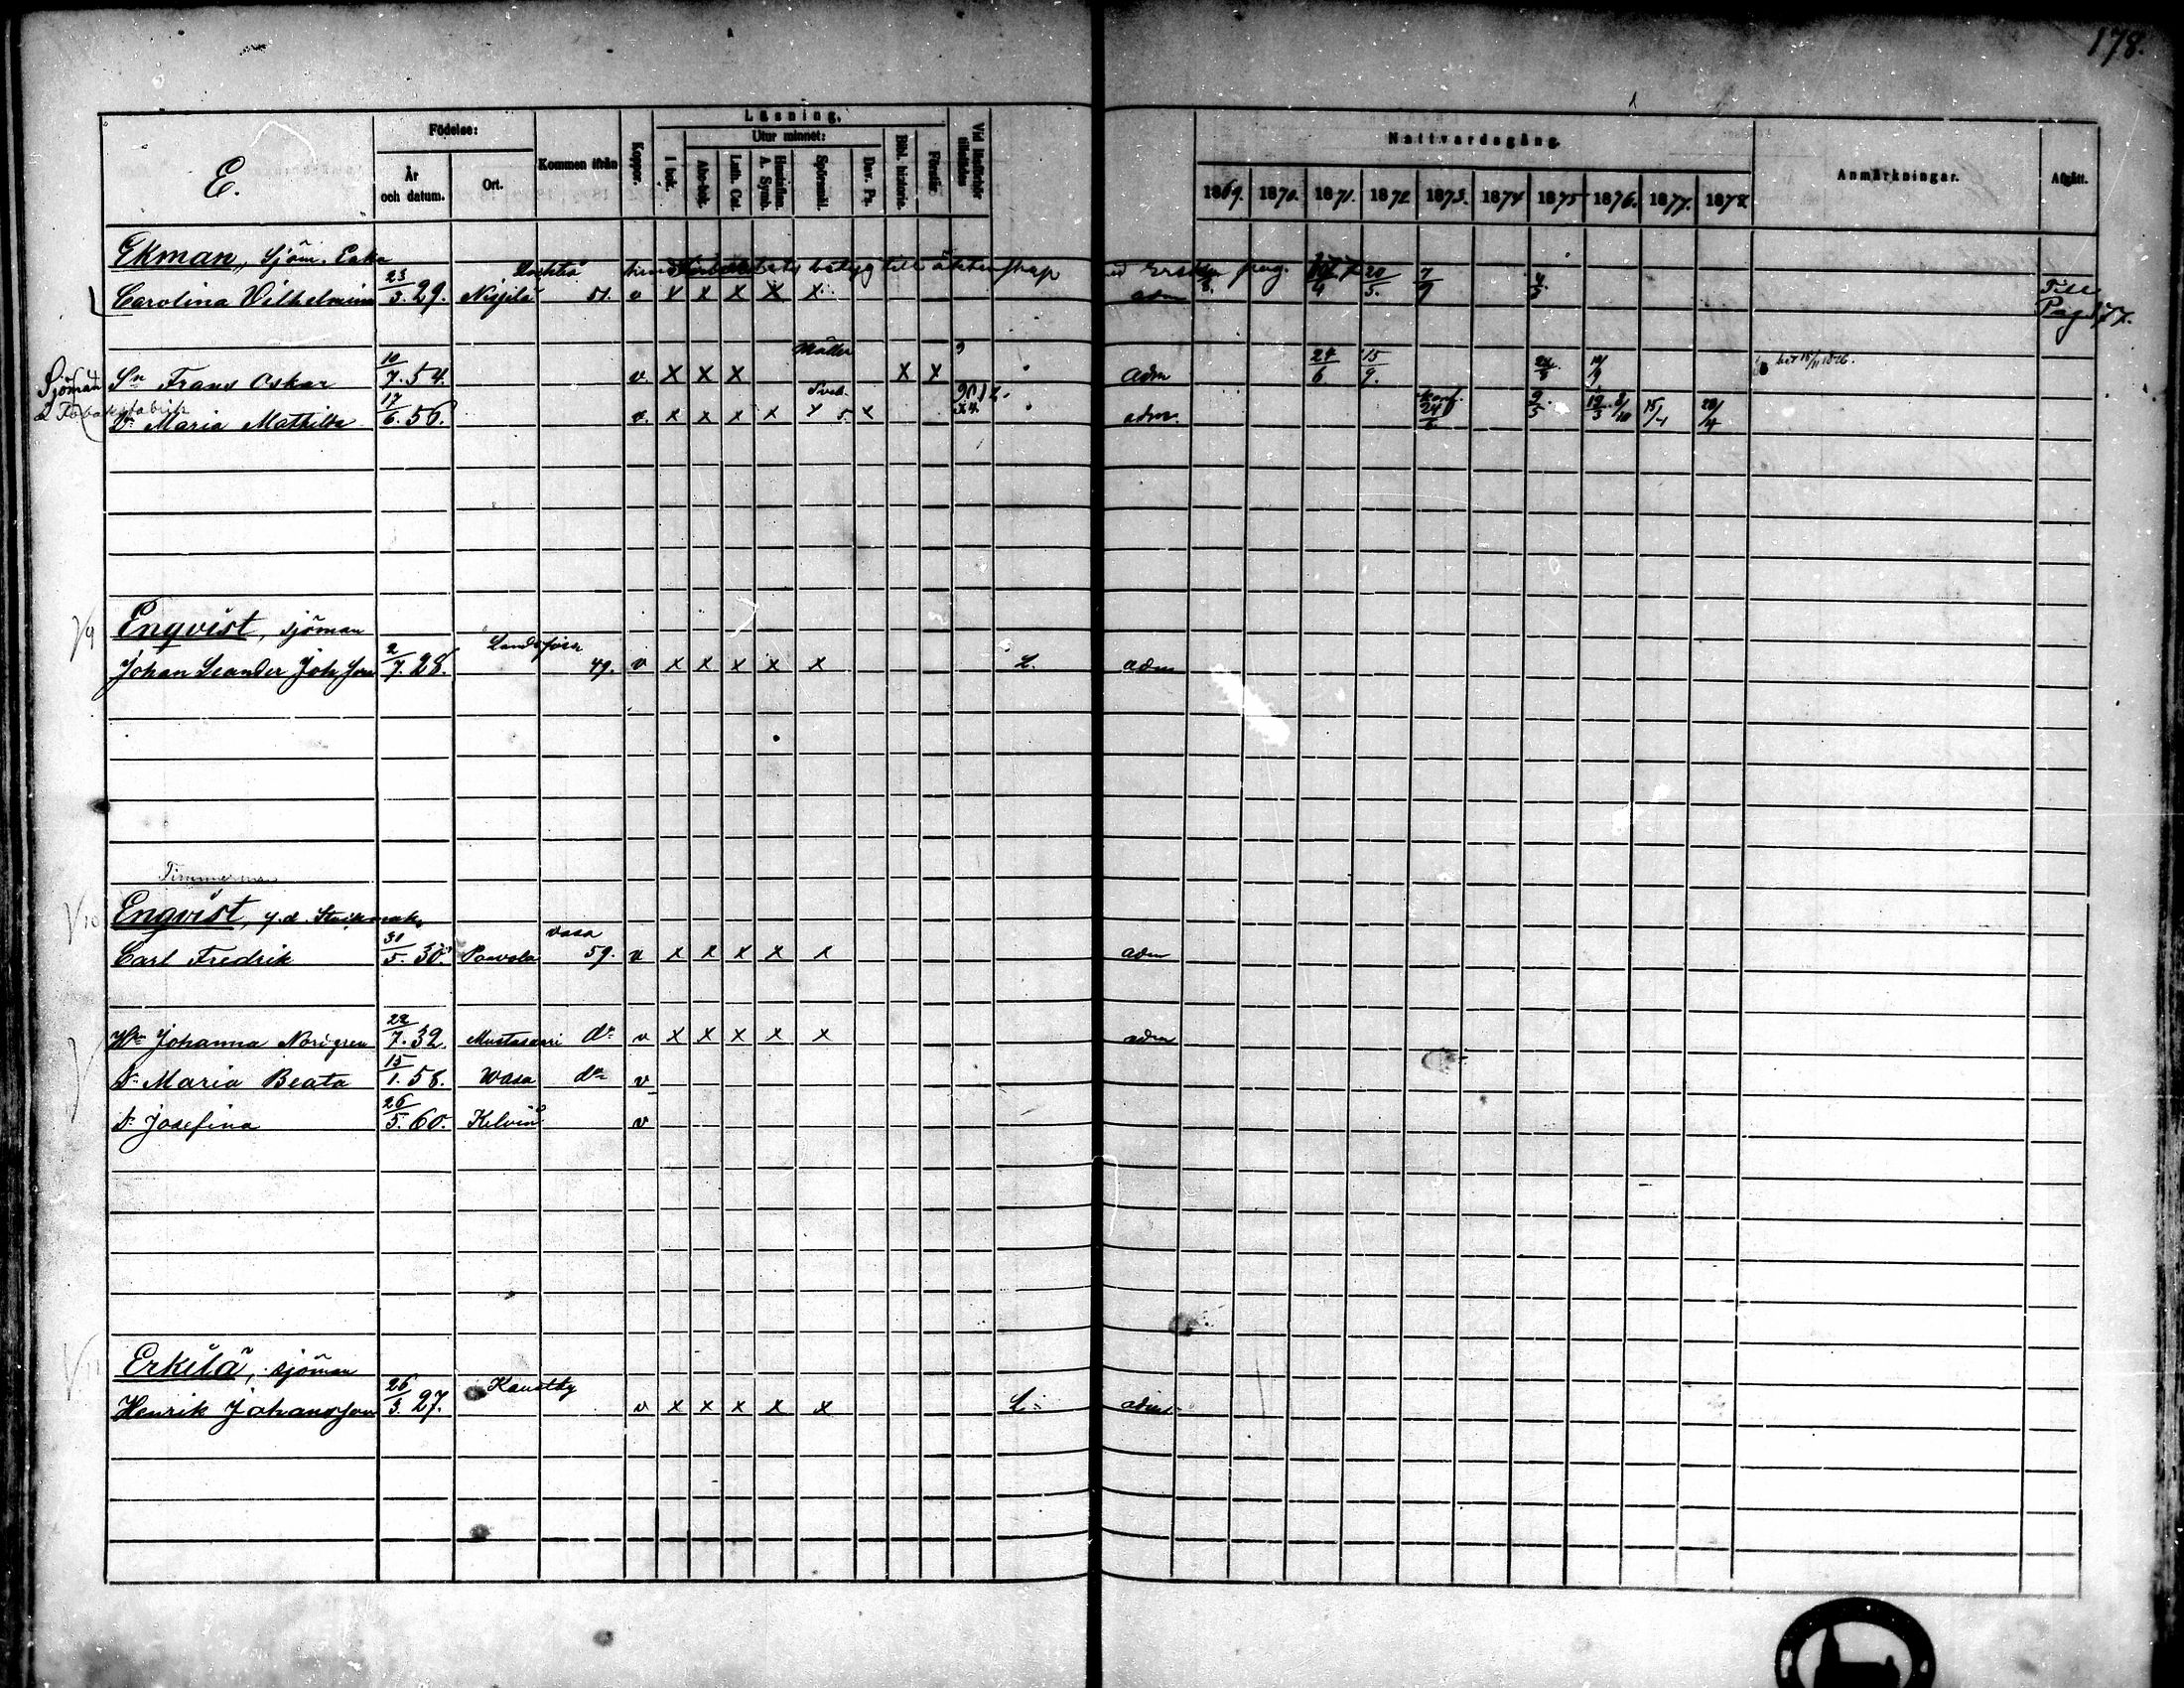 178.
E.
Födelse:
År och datum.
Ort.
Kommen ifrån
Koppor.
Läsning.
I bok.
Utur minnet:
Abc-bok.
Luth. Cat.
Hustaflan. A. Symb.
Spörsmål.
Dav. Ps.
Bibl. historia.
Förstår.
Vid läsförhör tillstädes
Nattvardsgång.
1869. 1870. 1871. 1872 1873. 1874 1875 1876. 1877. 1878
Anmärkningar.
Afgått.
Ekman, Sjöm. Enka
Lochteå hinderslöshets betyg till äktenskap
Carolina Wilhelmina 23/3. 29. 51. v x x x x x adm 20/5. 7/9 Till Pag 177.
Sjöman Sn Frans Oskar 10/7. 54. v. x x x x x adm 24/6 15/9.
Tobaksfabrik
Dr Maria Mathilda 17/6. 56. v. x x x x x 5. x adm. konf. 24/6 9/5 15/4 28/4
V 9
Enqvist, sjöman
Johan Leander Joh.son 2/7. 28. 49. v x x x x x L. adm
Timmerman
V 10
Enqvist, f.d.
Carl Fredrik 31/5. 30. Paavola Vasa 59. v x x x x x adm
Hu Johanna Norrgren 22/7. 32. Mustasaari do v x x x x x adm
Dr Maria Beata 15/1. 58. Wasa do v
Dr Josefina 26/5. 60. Kelviå v
V 11
Erkilä, sjöman
Henrik Johansson 26/3. 27. Kaustby v x x x x x L. adm